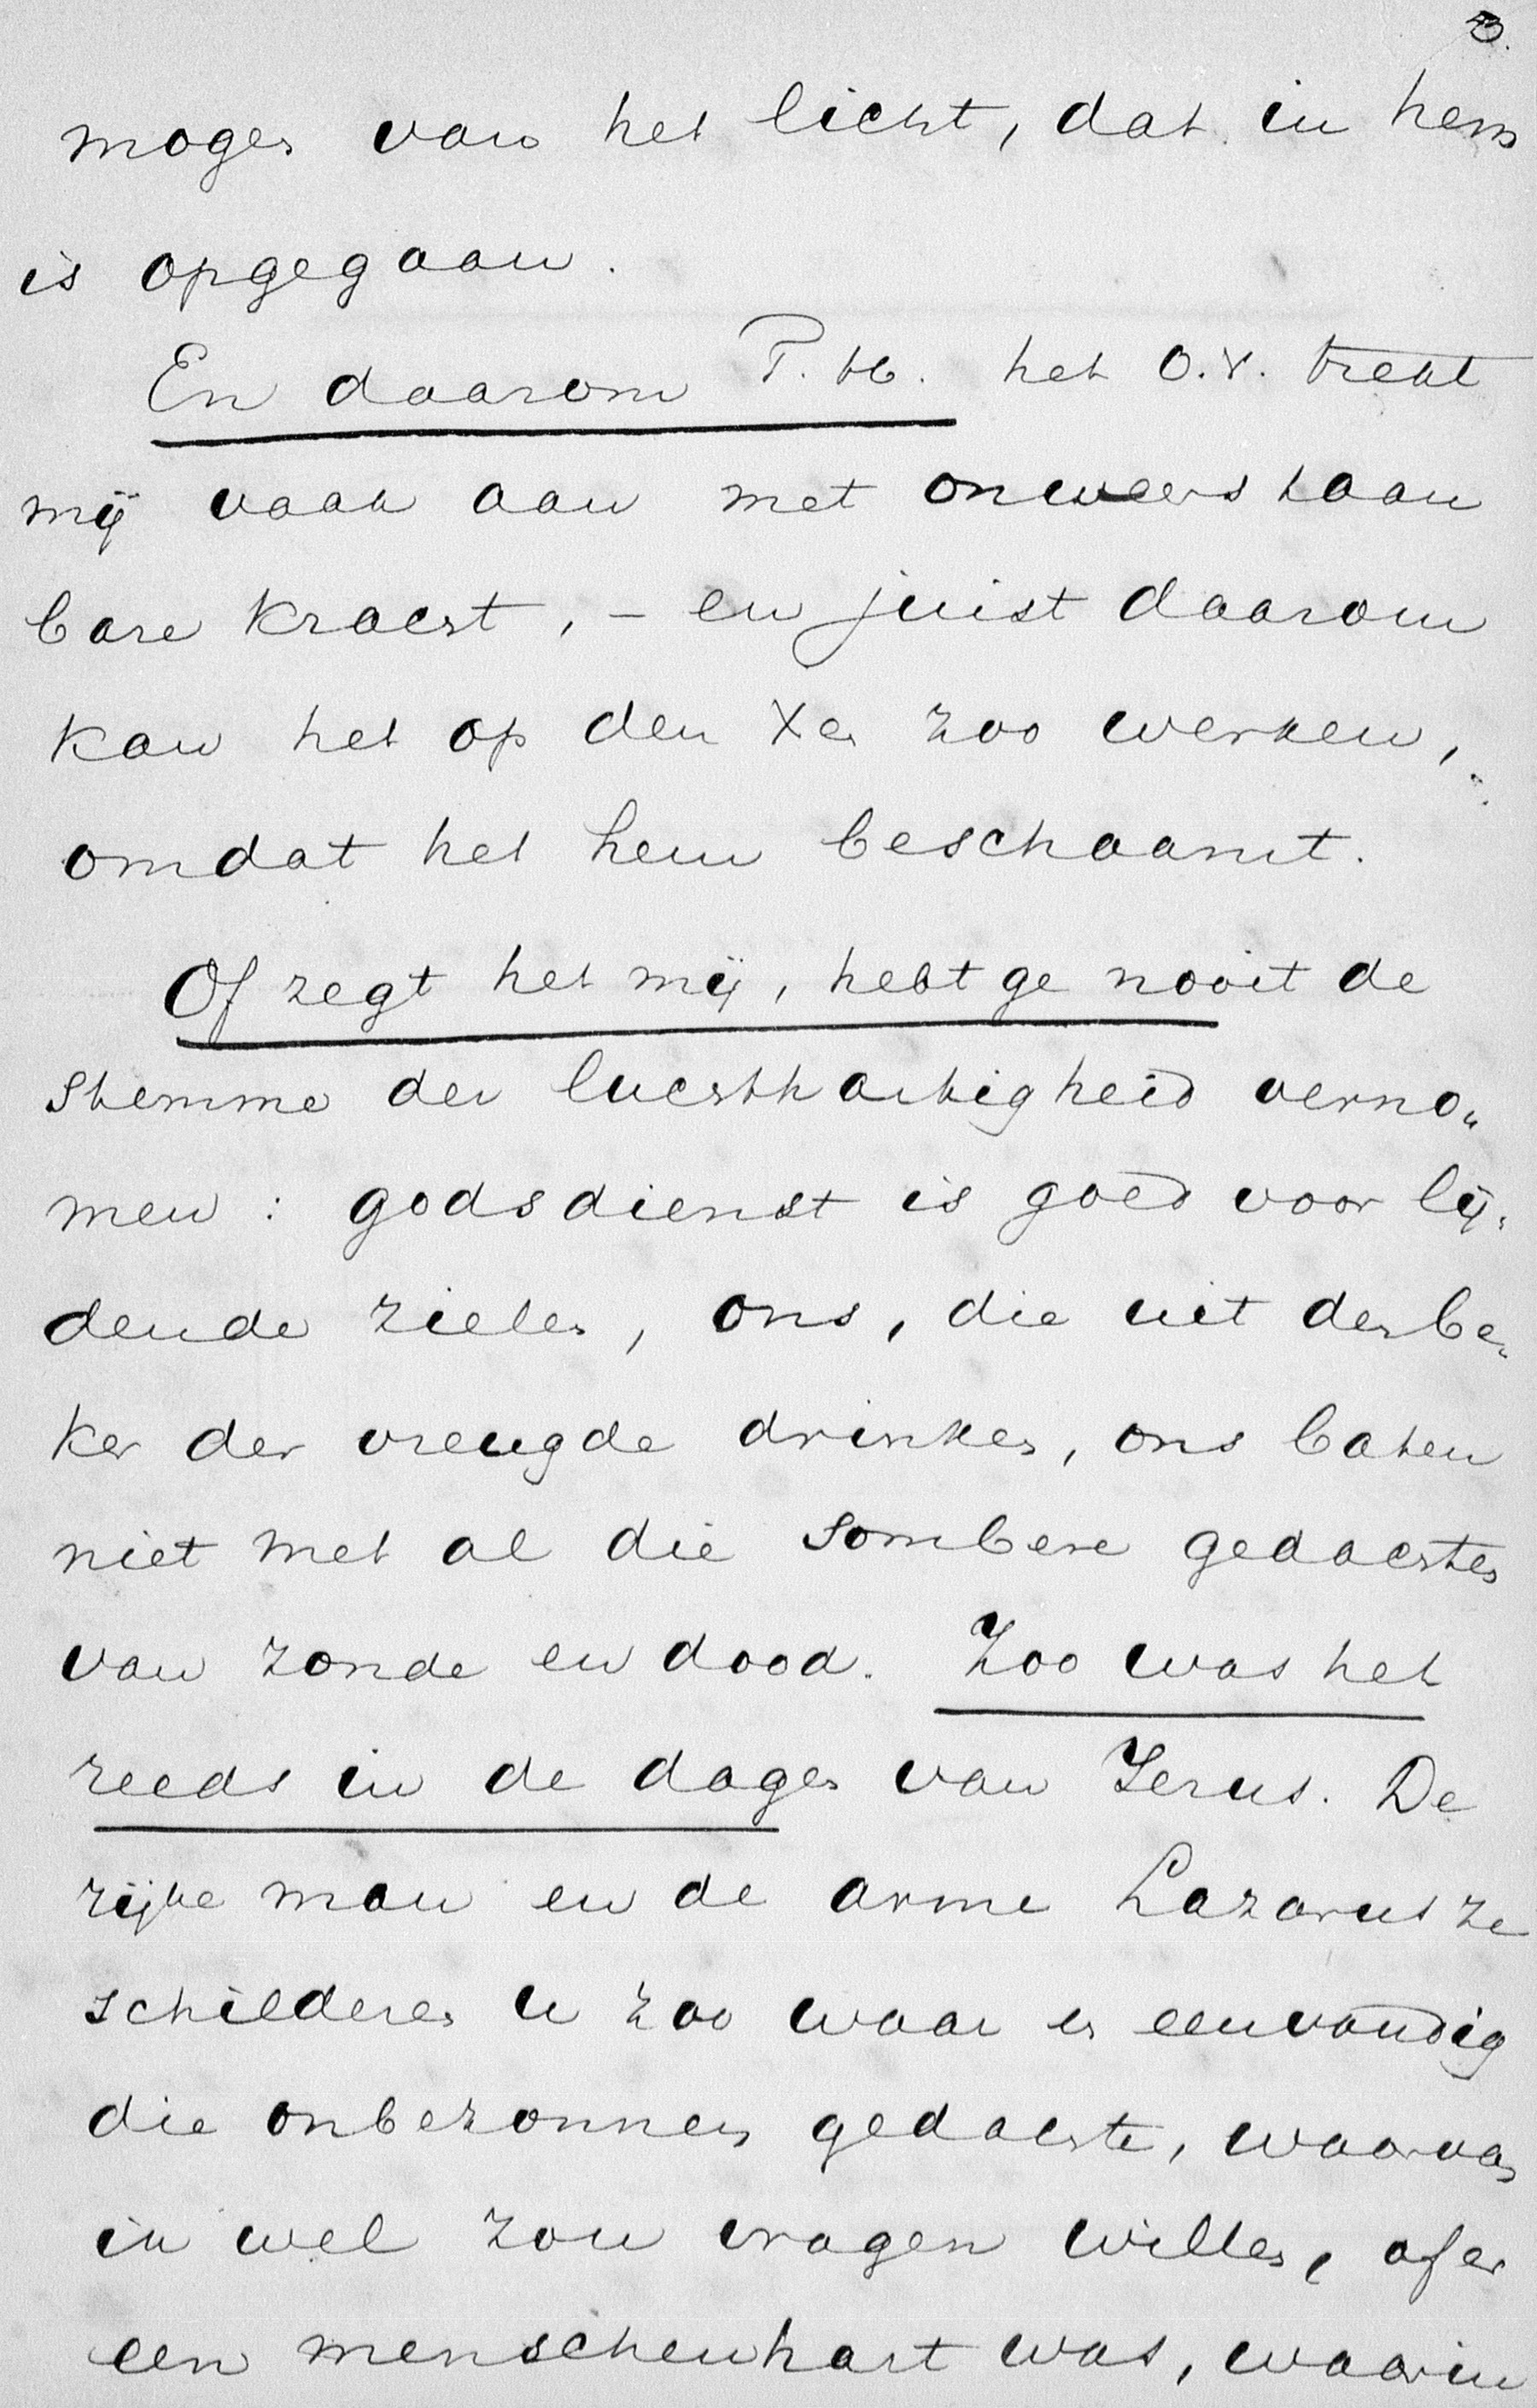 3.
mogen van het licht, dat in hem
is opgegaan.
En daarom T. H. het O.V. trekt
mij vaak aan met onweerstaan
bare kracht, – en juist daarom
kan het op den Xen zoo werken,
omdat het hem beschaamt.
Of zegt het mij, hebt ge nooit de
stemme der luchthartigheid verno„
men : godsdienst is goed voor lij„
dende zielen, ons, die uit den be„
ker der vreugde drinken, ons baten
niet met al die sombere gedachten
van zonde en dood. Zoo was het
reeds in de dagen van Jezus. De
rijke man en de arme Lazarus ze
schilderen u zoo waar en eenvoudig
die onbezonnen gedachte, waarvan
ik wel zou vragen willen, of er
een menschenhart was, waarin